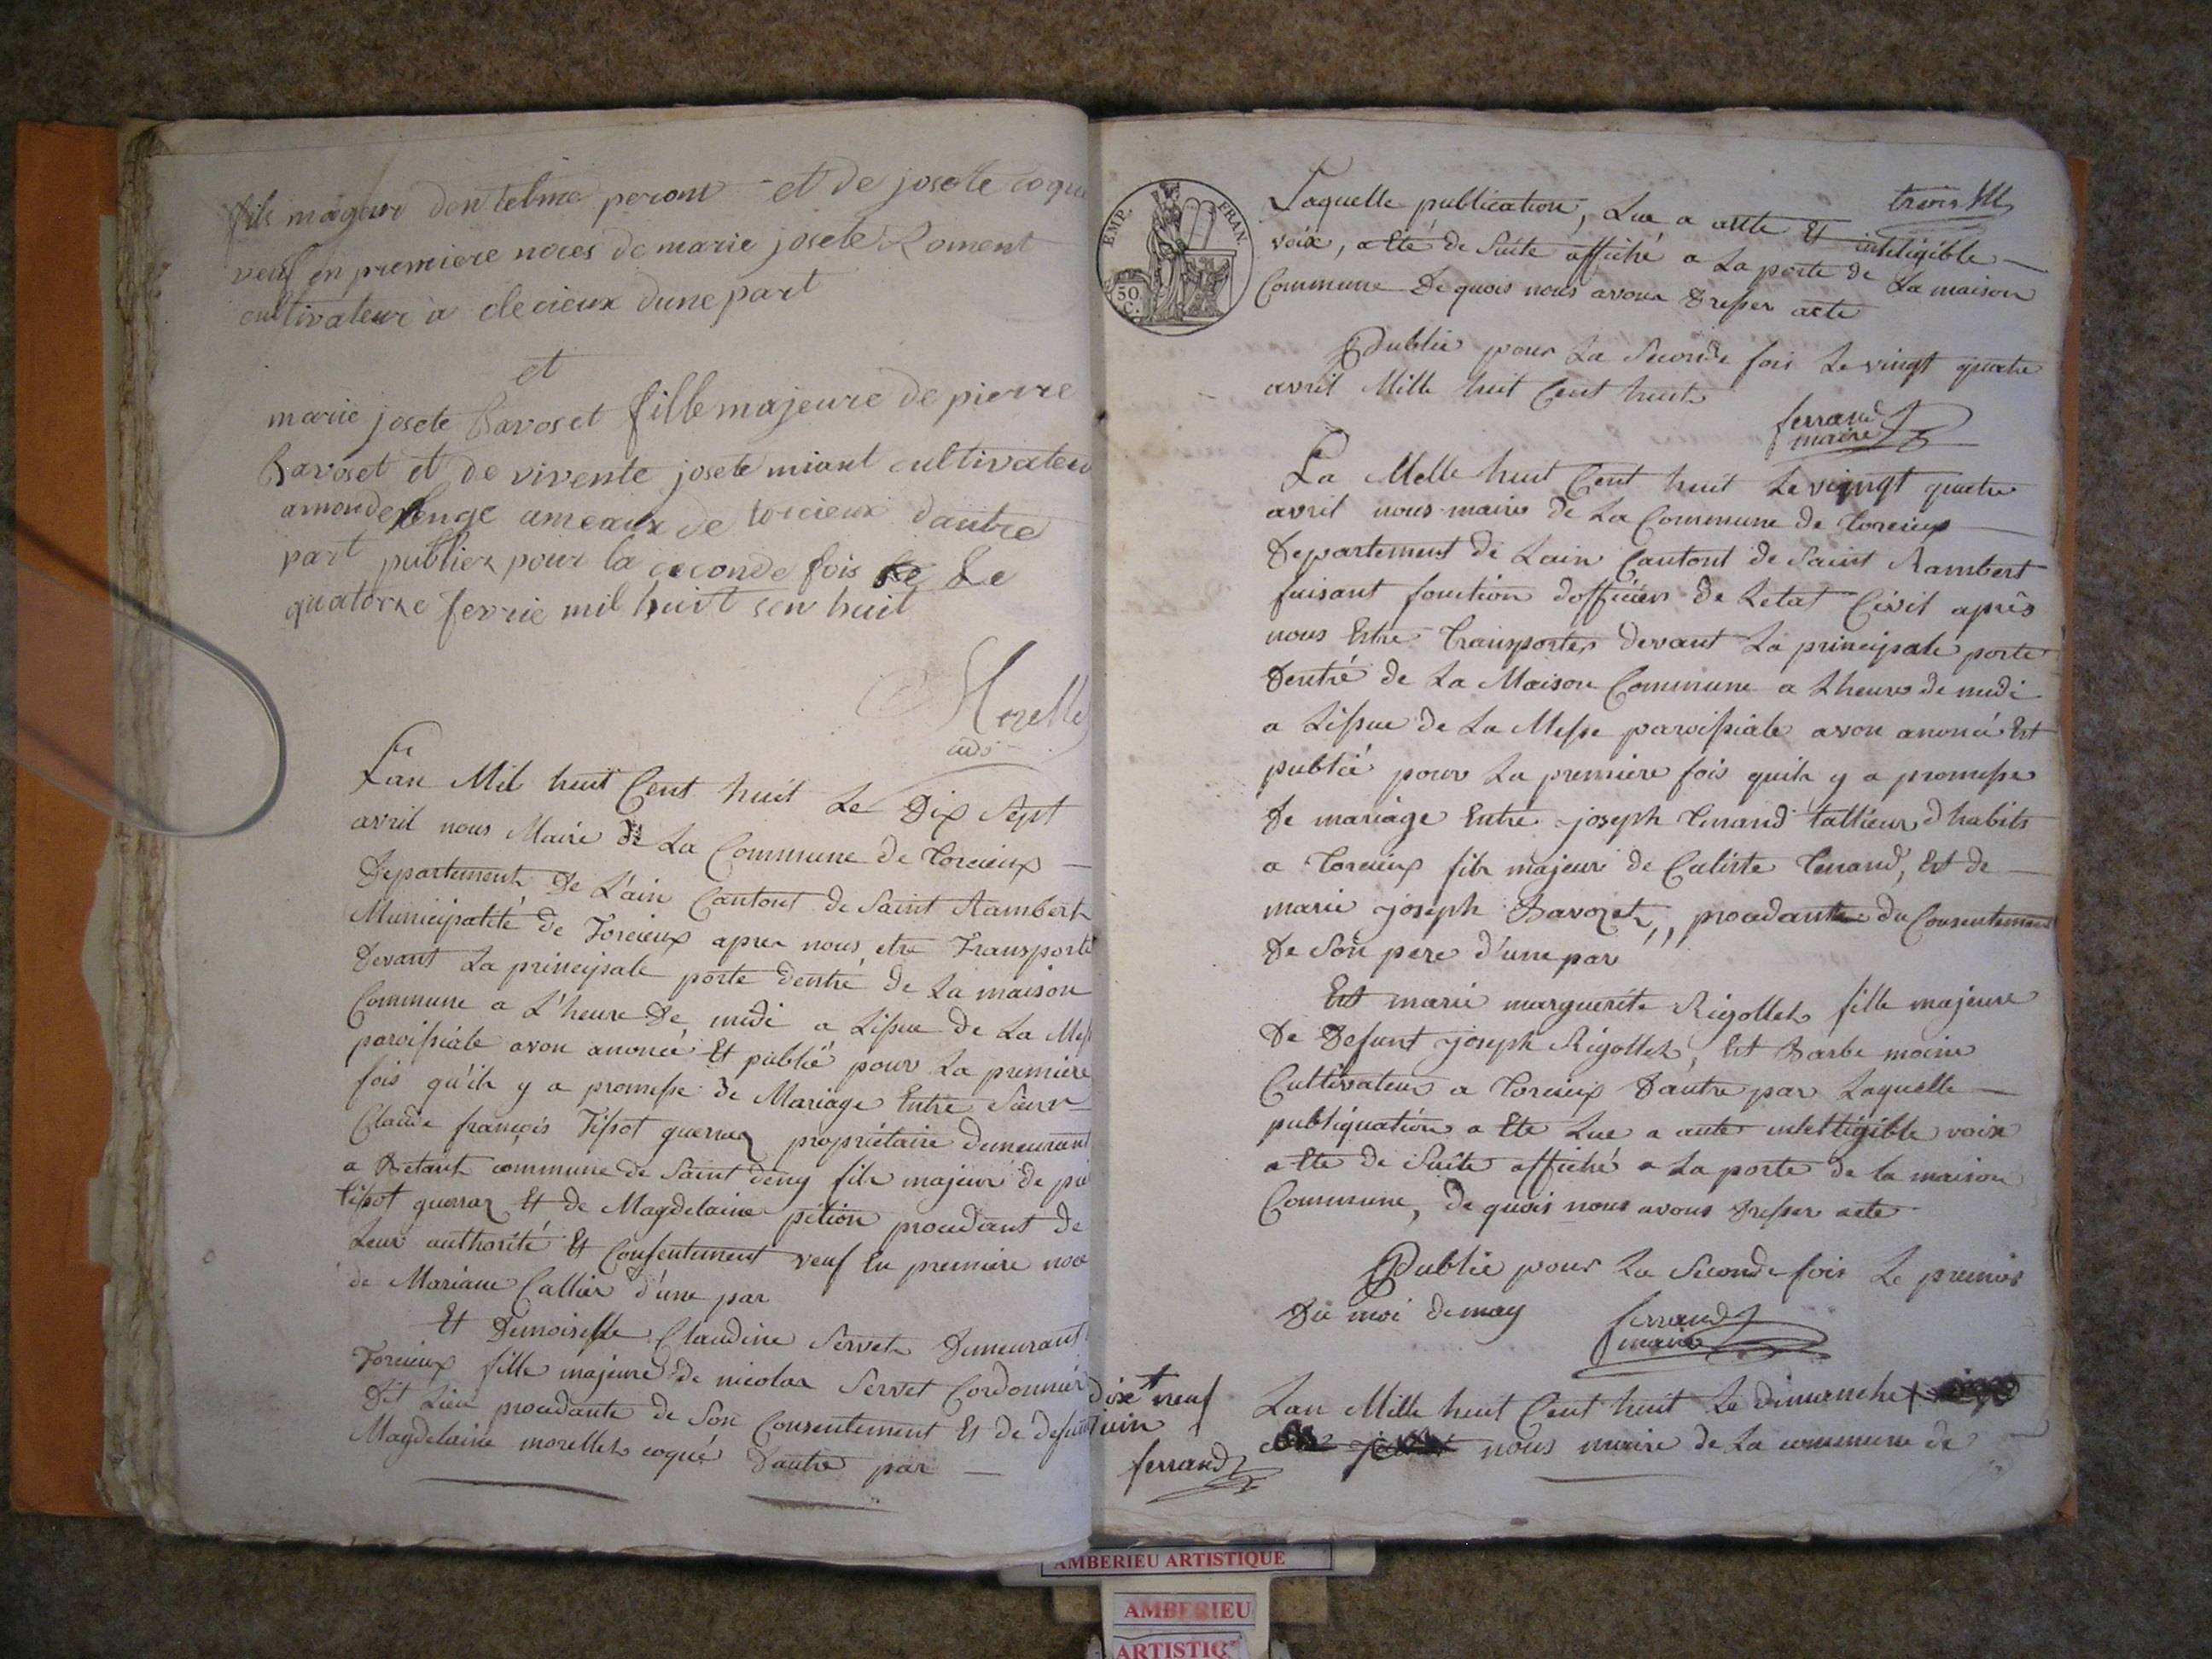 fils mageur dentelme peront et de josete coqu
veuf en premiere noces de marie josete Roment
cultivateur a clecieux dune part
et
marie josete Bavoset fille majeure de pierre
Bavoset et de vivente josete miant cultivateur
amondelenge ameaux de torcieux dautre
part publier pour la ceconde fois Le
quatorze fevrie mil huit sen huit
Morelle
adj
Lan Mil huit Cent huit Le Dix Sept
avril nous Maire de La Commune de Torcieux
Departement De L'ain Cantont de Saint Rambert
Municipalité de Torcieux apres nous etre Transporté
Devant La principale porte dentré de La maison
Commune a L'heure De midi a Lissue de La Mess
paroissiale avon anoncé Et publié pour La premiere
fois qu'ils y a promesse de Mariage Entre Sieur
Claude françois Tissot guerraz propriétaire demeurant
a Betant commune de Saint deny fils majeur de pie
tissot guerraz Et de Magdelaine pétion procedant de
Leur authorité Et Consentement veuf En premiere noce
de Mariane Callier d'une par
Et Demoiselle Claudine Servet Demeurant
Torcieux fille majeure de nicolas Servet Cordonnier
Dit Lieu procedante de Son Consentement Et de defunt
Magdelaine morellet coqué Dautre par
trois
EMP. FRAN.
50 C.
Laquelle publication, Lue a aute Et inteligible
voix, a Eté de Suite affiché a La porte de La maison
Commune De quois nous avons Dresser acte
Publié pour La Seconde fois Le vingt quatre
avril Mille huit Cent huit
ferrand
maire
La Mille huit Cent huit Le veingt quatre
avril nous maire de La Commune de Torcieux
Departement de Lain Cantont de Saint Rambert
faisant fonction dofficier de Letat Civil après
nous Estre Transporter devant La principale porte
Dentré de La Maison Commune a Lheure de midi
a Lissue de La Messe paroissiale avon anoncé Est
publié pour La premiere fois quils y a promesse
De mariage Entre joseph Tenand tallieur dhabits
a Torcieux fils majeur de Caliste Tenand, Est de
marie joseph Bavozet,, procedante du Consentement
De Son père d'une par
Est marie marguerite Rigollet fille majeure
De Defunt joseph Rigollet, Est Barbe moine
Cultivateur a Torcieux Dautre par Laquelle
publiquation a Ete Lue a aute intelligible voix
a Ete de Suite affiché a La porte de la maison
Commune, de quois nous avous Dresser acte
Publié pour La Seconde fois Le premier
Du moi de may
ferrand
maire
dix neuf
juin
ferrand
Lan Mille huit Cent huit Le dimanche
nous maire de La commune de
AMBERIEU ARTISTIQUE
AMBERIEU
ARTISTIQ